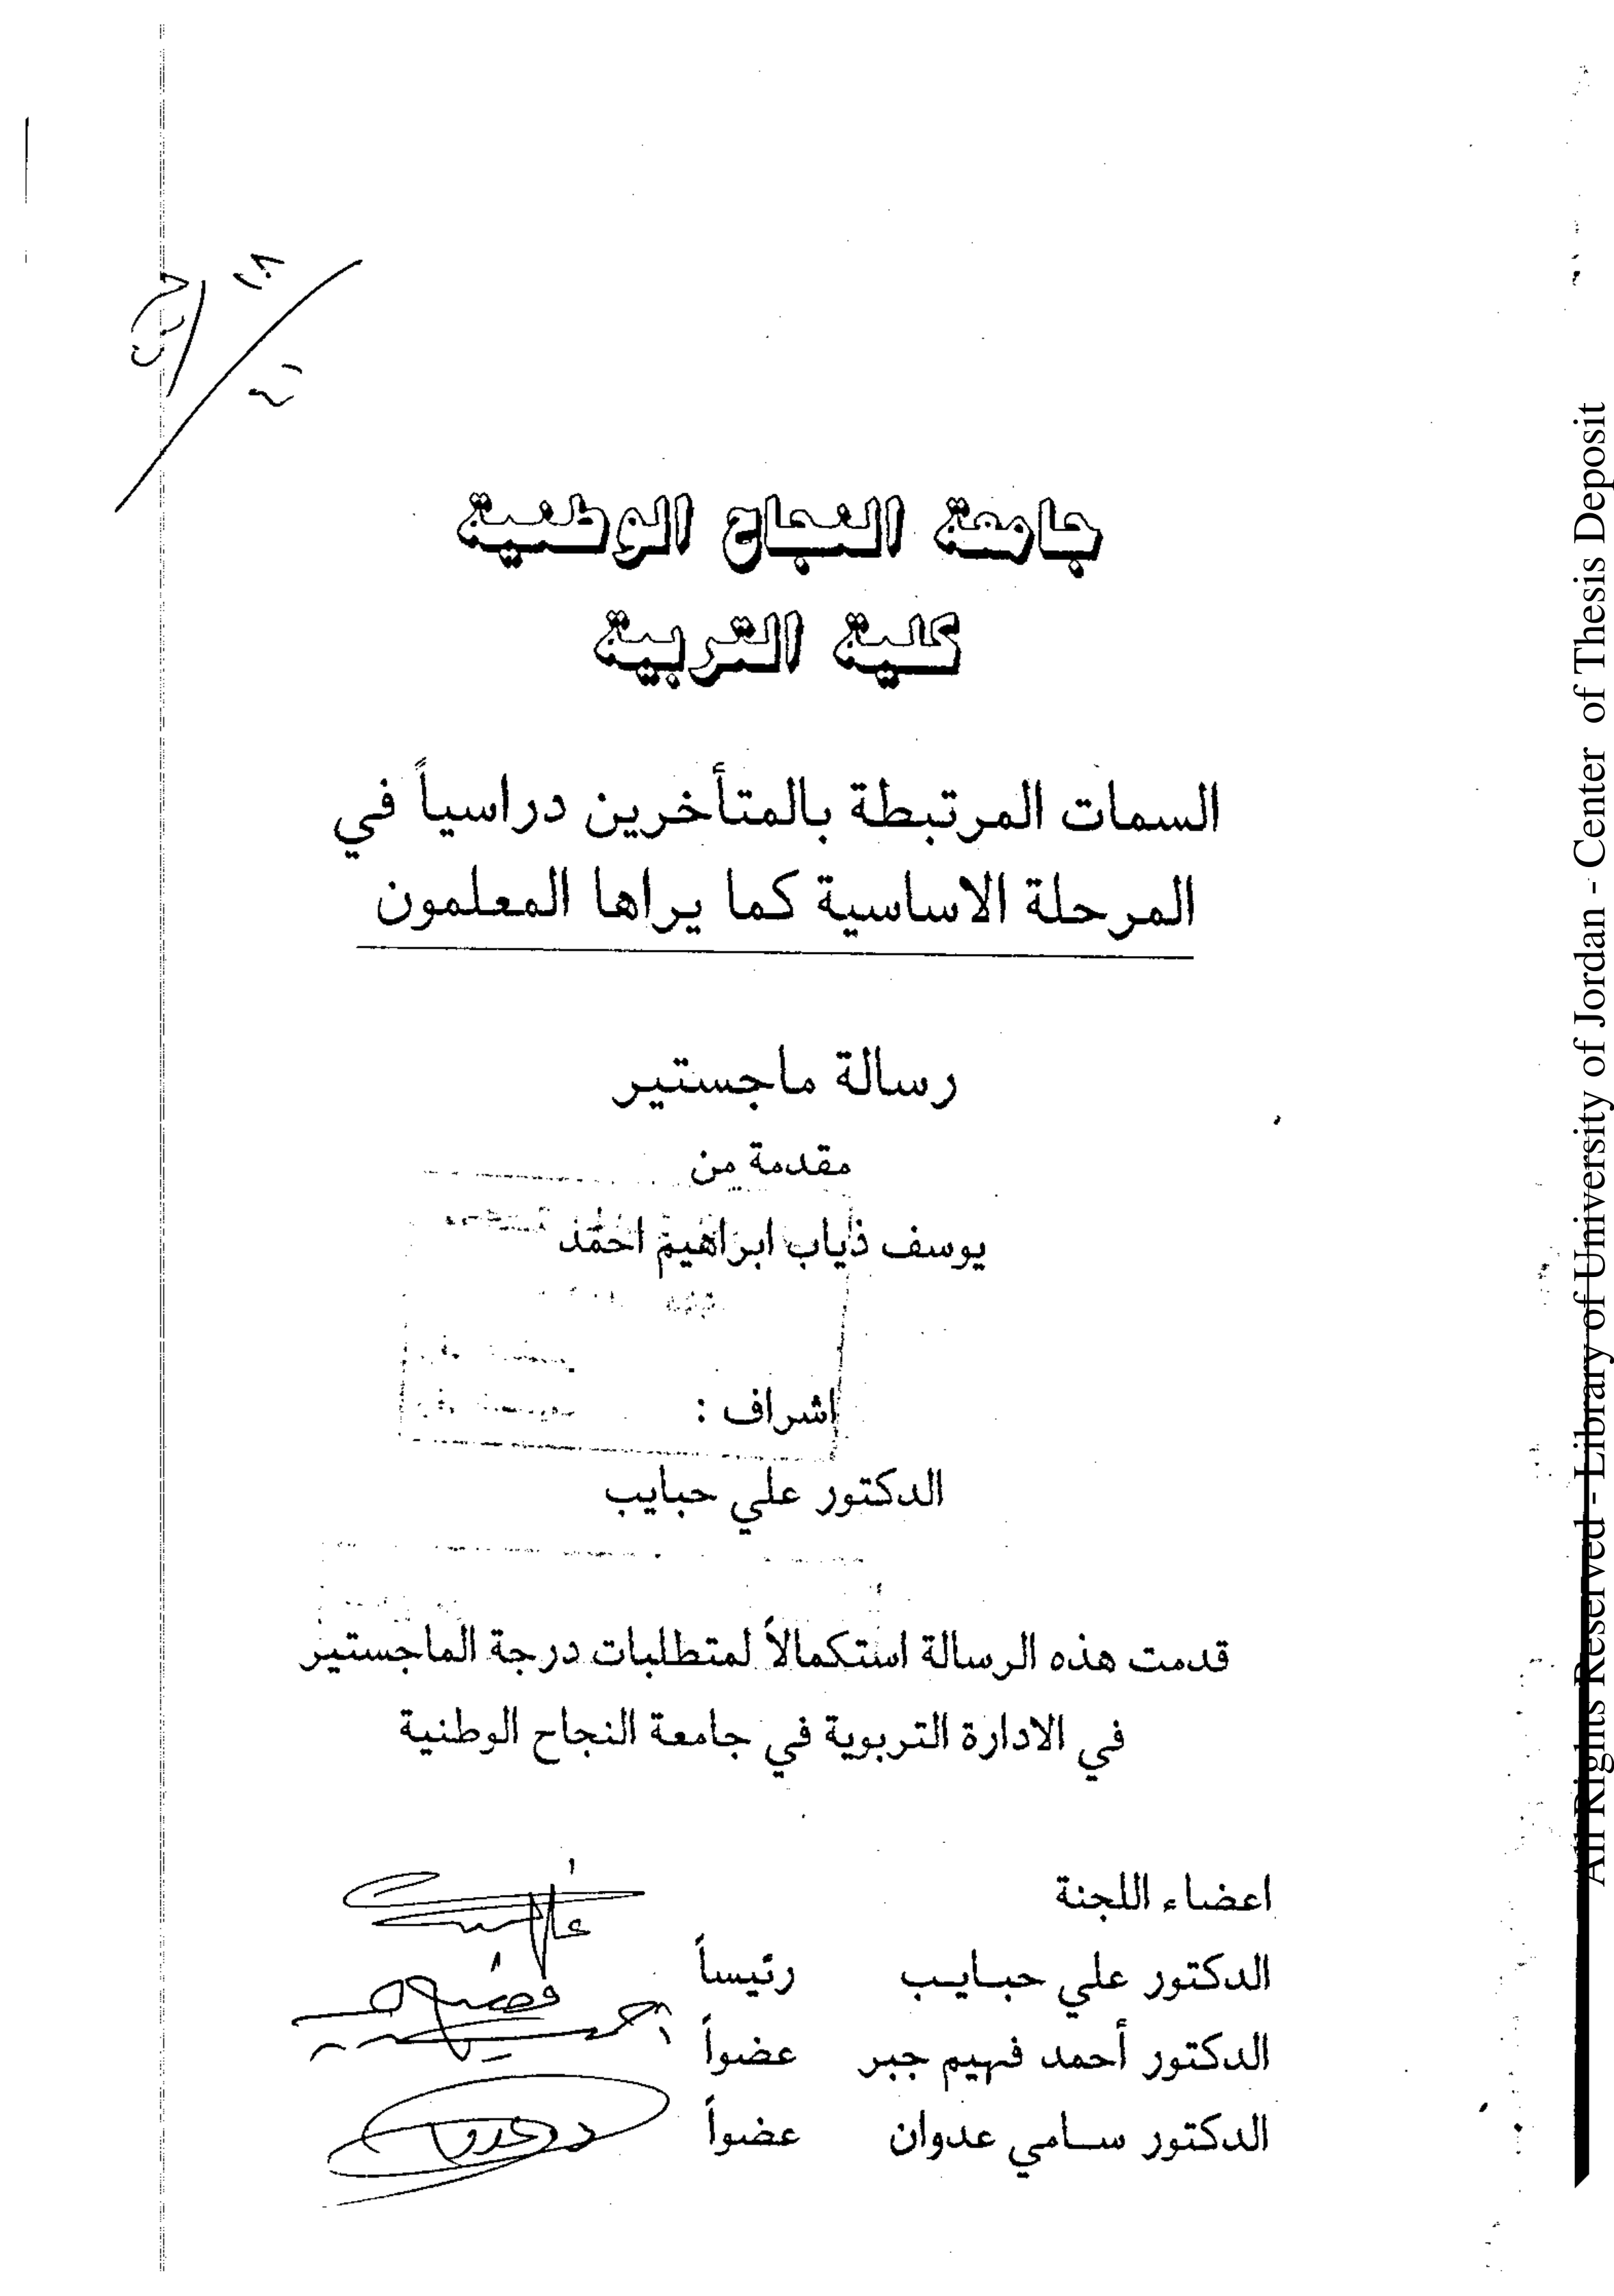 جامعة النجاح الوطنية
كلية التربية
السمات المرتبطة بالمتأخرين دراسياً في
المرحلة الاساسية كما يراها المعلمون
رسالة ماجستير
مقدمة من
يوسف ذياب ابراهيم احمد
اشراف :
الدكتور علي حبايب
قدمت هذه الرسالة استكمالاً لمتطلبات درجة الماجستير
في الادارة التربوية في جامعة النجاح الوطنية
اعضاء اللجنة
الدكتور علي حبـايـب رئيساً
الدكتور أحمد فهيم جبر عضواً
الدكتور سـامي عدوان عضواً
All Rights Reserved - Library of University of Jordan - Center of Thesis Deposit